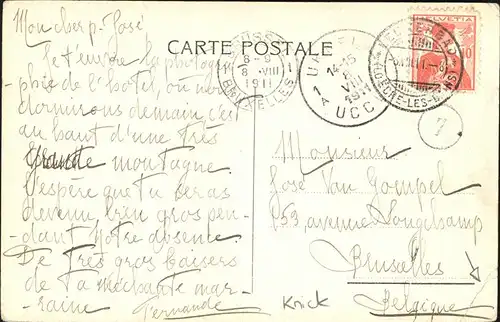 Mon cher p. José
CARTE POSTALE
Je t'envoie la photogra
phie de l'hôtel, où nous
dormirons demain, c'est
au haut d'une très
grande montagne.
J'espère que tu seras
devenu bien gros pen-
dant notre absence.
De très gros baisers
de ta méchante mar-
raine Fernande
8-9
8 VIII
1911
14-15
8
VIII
1911
UCC
LOECHE-LES-BAINS
HELVETIA
10
7
Monsieur
José Van Gompel
153, avenue Longchamp
Bruxelles
Belgique
Knick